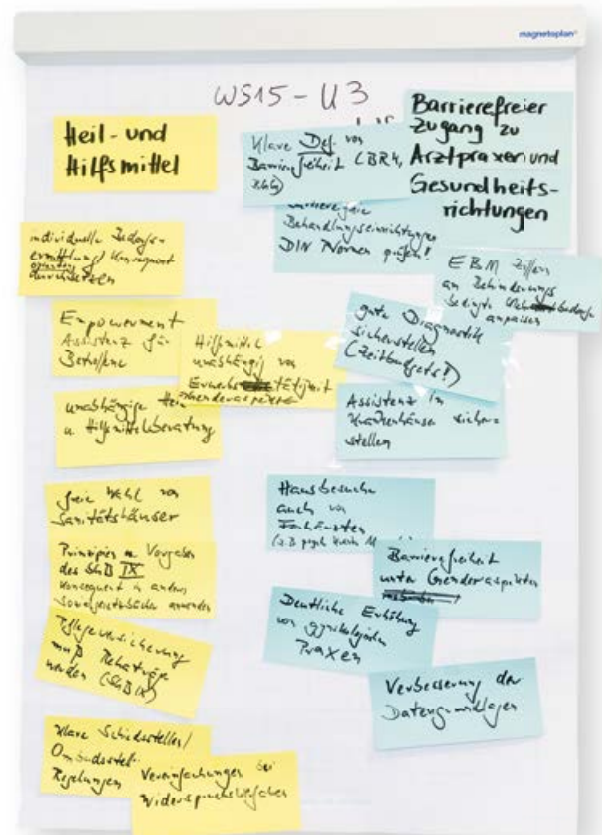 magnetoplan
WS15 - U3
Heil- und
Hilfsmittel
individuelle Bedarfs-
ermittlung konsequent
durchsetzen
Empowerment
Assistenz für
Betroffene
Hilfsmittel
unabhängig von
Erwerbstätigkeit
Genderaspekte
unabhängige Heil-
u Hilfsmittelberatung
freie Wahl von
Sanitätshäuser
Prinzipien u Vorgaben
des SGB IX
konsequent in anderen
Sozialgesetzbücher anwenden
Pflegeversicherung
muß Rehaträger
werden (SGB IX)
Klare Schiedsstellen/
Ombudsstel-
Regelungen
Vereinfachungen bei
Widerspruchsverfahren
Barrierefreier
Zugang zu
Arztpraxen und
Gesundheits-
richtungen
Klare Def. von
Barrierefreiheit (BRK,
Barrierefreie
Behandlungseinrichtungen
DIN Normen prüfen!
EBM Ziffern
an Behinderungs
bedingte Mehrbedarfe
anpassen
gute Diagnostik
sicherstellen
(Zeitbudgets!)
Assistenz im
Krankenhäuser sicher-
stellen
Hausbesuche
auch von
Fachärzten
(z.B psych
Barrierefreiheit
unter Genderaspekten
Deutliche Erhöhung
von gynäkologischen
Praxen
Verbesserung der
Datengrundlagen